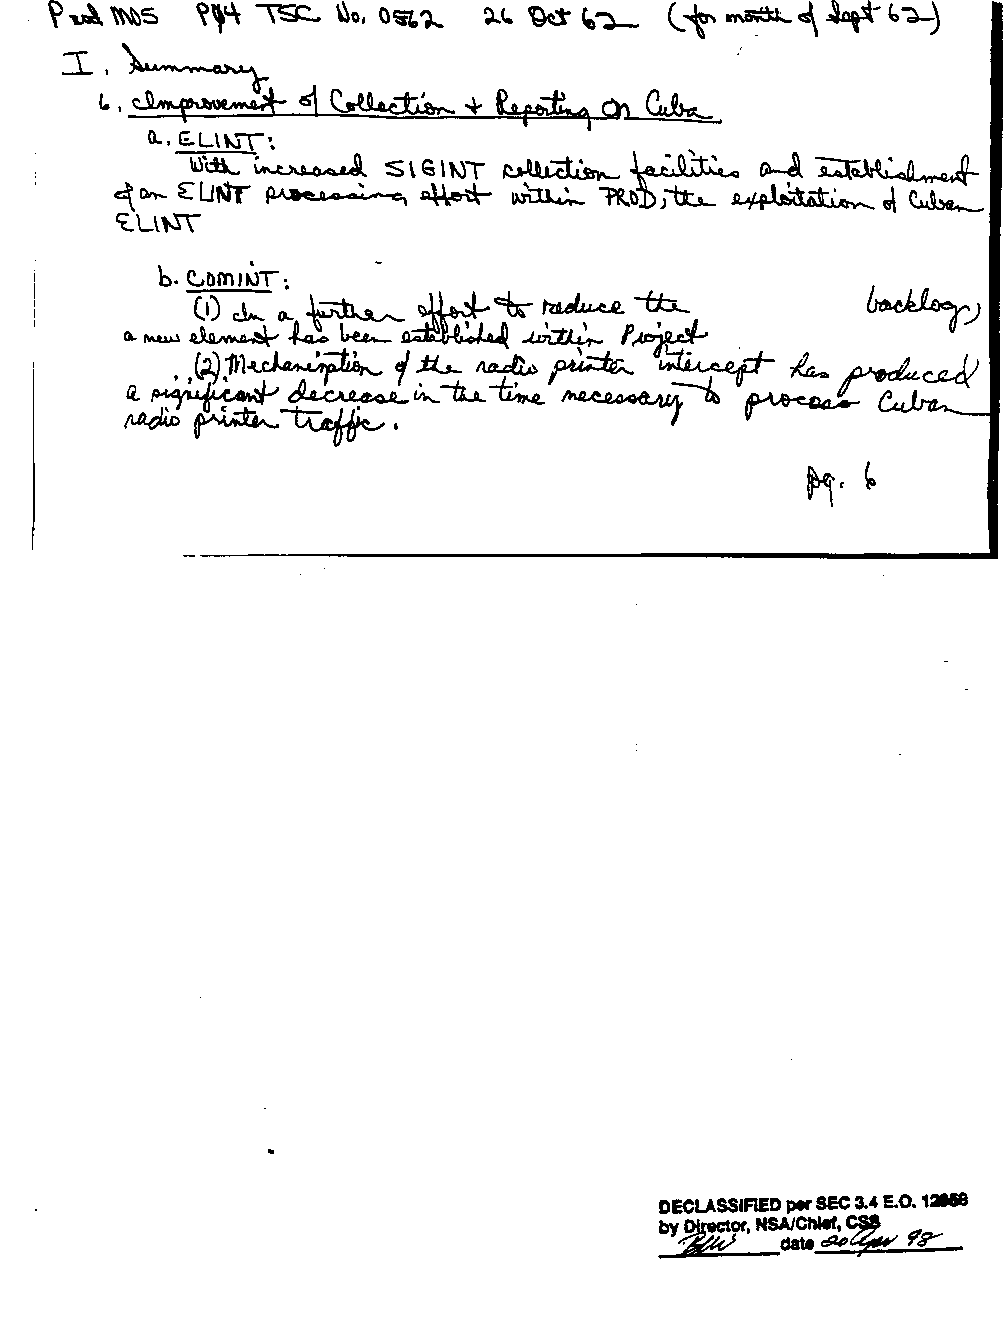 Prod MOS PØ4 TSC No. 0562 26 Oct 62 (for month of Sept 62)
I. Summary
6. Improvement of Collection + Reporting on Cuba
a. ELINT:
With increased SIGINT collection facilities and establishment
of an ELINT processing effort within PROD, the exploitation of Cuban
ELINT
b. COMINT:
(1) In a further effort to reduce the backlog,
a new element has been established within Project
(2) Mechanization of the radio printer intercept has produced
a significant decrease in the time necessary to process Cuban
radio printer traffic.
pg. 6
DECLASSIFIED per SEC 3.4 E.O. 12958
by Director, NSA/Chief, CSS
date 20 Apr 98